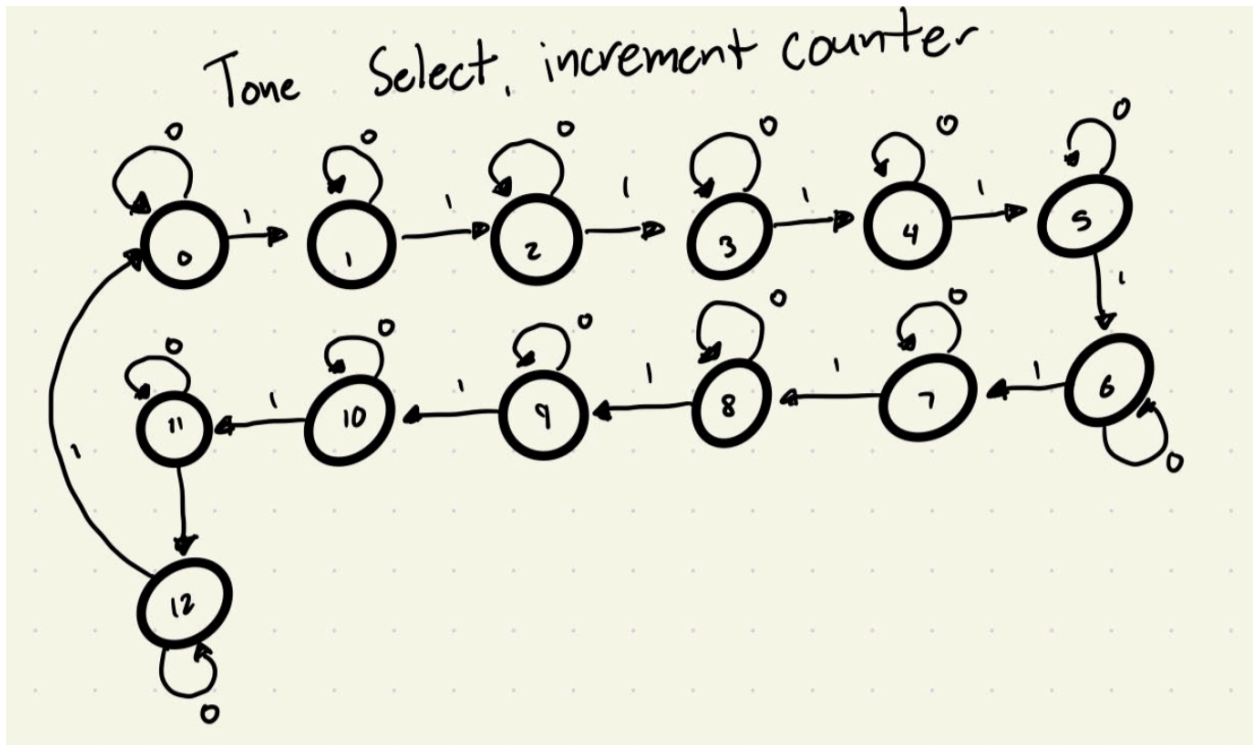 Tone Select, increment counter
0 0 0 0 0 0
1 1 1 1 1
0 1 2 3 4 5
1
0 0 0 0 0
1 1 1 1 1
11 10 9 8 7 6
0
1
12
0